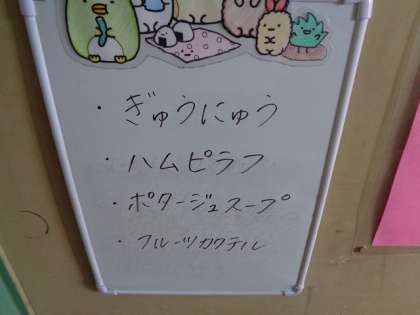 ・ぎゅうにゅう
・ハムピラフ
・ポタージュスープ
・フルーツカクテル